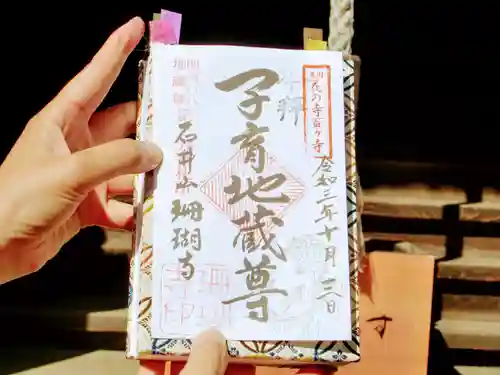 奉拝
東国花の寺百ヶ寺
令和三年十月三日
子育地蔵尊
石井山
珊瑚寺
す